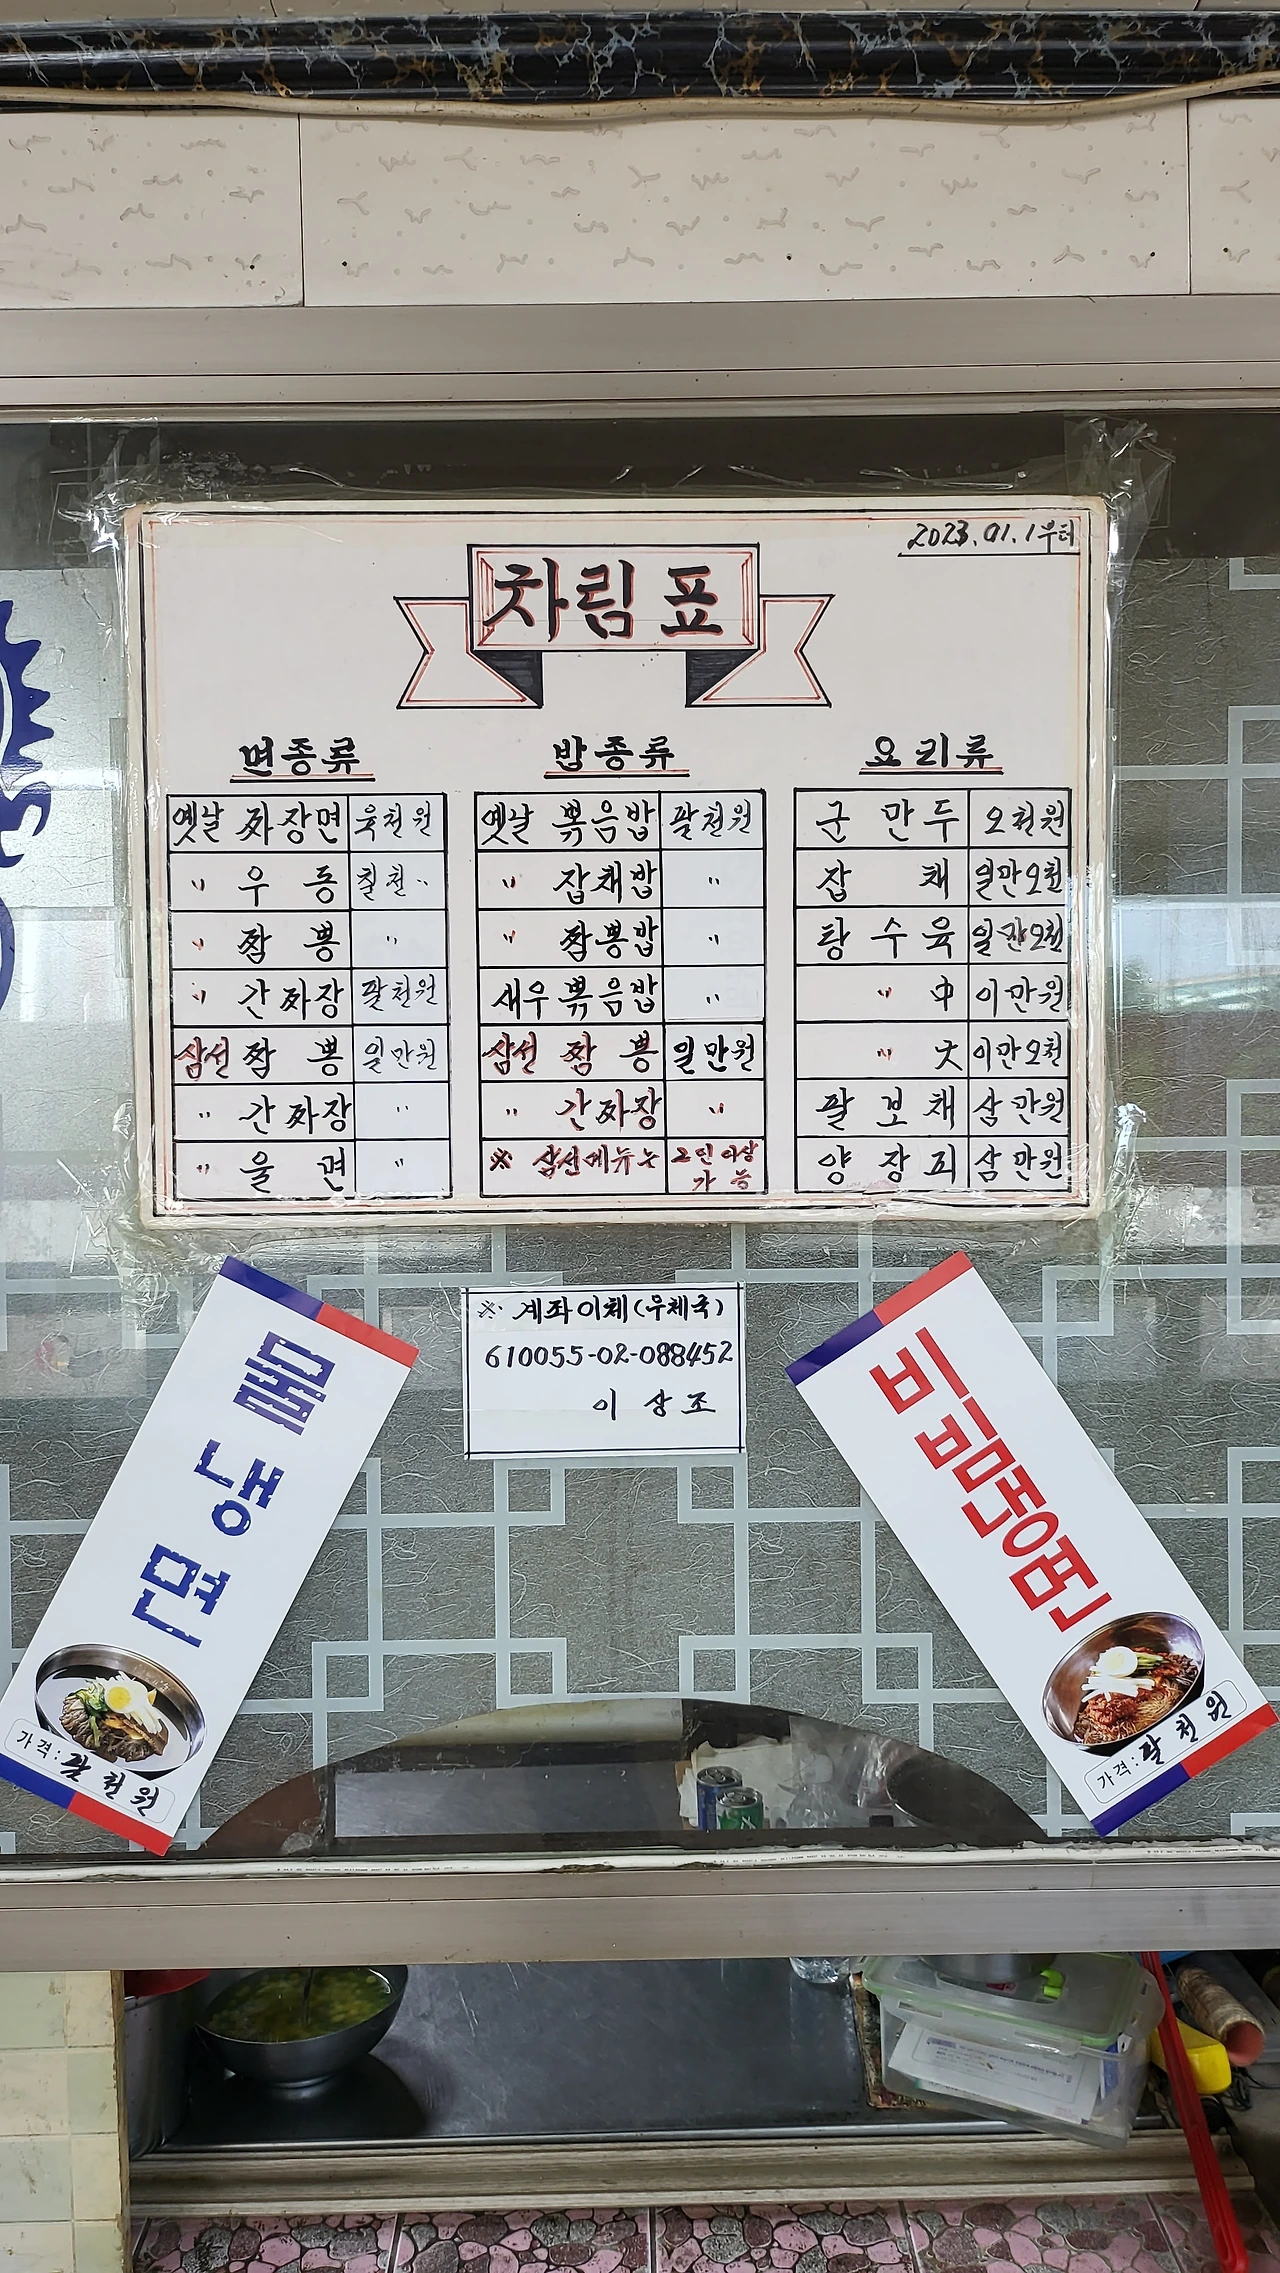 2023.01.1부터
차림표
면종류
옛날 짜장면 육천원
〃 우동 칠천〃
〃 짬뽕 〃
〃 간짜장 팔천원
삼선 짬뽕 일만원
〃 간짜장 〃
〃 울면 〃
밥종류
옛날 볶음밥 팔천원
〃 잡채밥 〃
〃 짬뽕밥 〃
새우볶음밥 〃
삼선 짬뽕 일만원
〃 간짜장 〃
※ 삼선메뉴는 2인이상
가능
요리류
군만두 오천원
잡채 일만오천
탕수육 일만오천
〃 中 이만원
〃 大 이만오천
팔보채 삼만원
양장피 삼만원
※ 계좌이체(우체국)
610055-02-088452
이상조
물냉면
가격: 팔천원
비빔냉면
가격: 팔천원